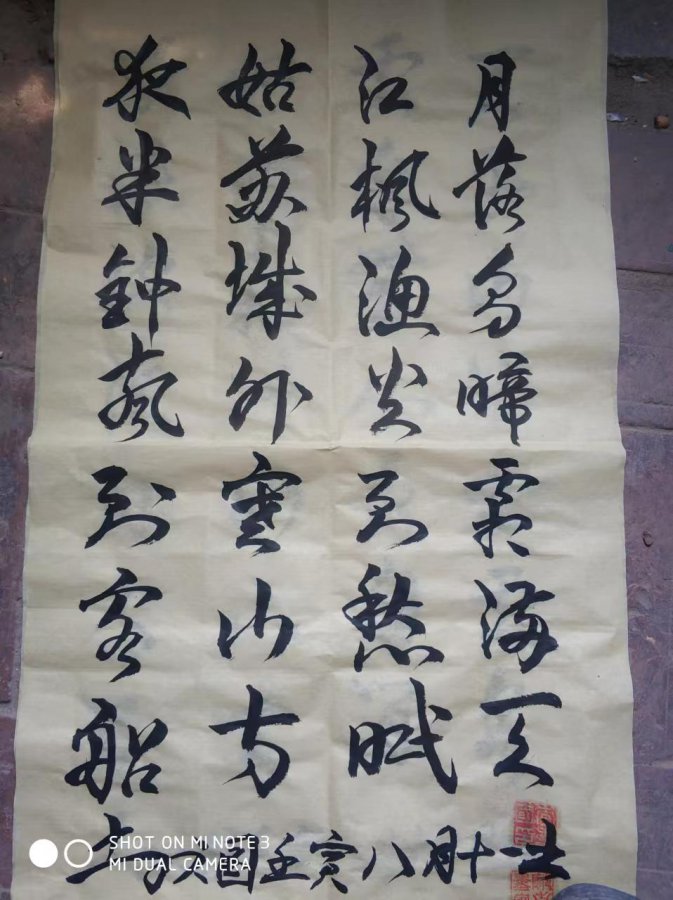 月落烏啼霜满天
江枫渔火对愁眠
姑苏城外寒山寺
夜半鈡声到客船
壬寅八月十一
SHOT ON MI NOTE 3
MI DUAL CAMERA